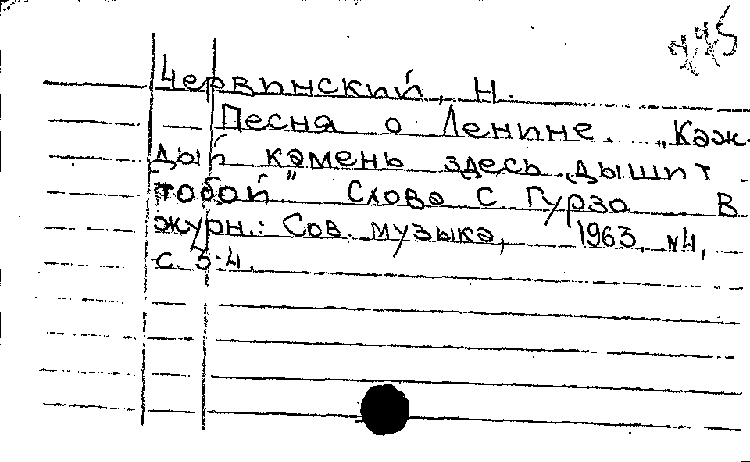 Червинский, Н.
Песня о Ленине. „Каж-
дый камень здесь дышит
тобой" Слова С. Гурзо В
журн.: Сов. музыка, 1963, №4,
с. 3-4.